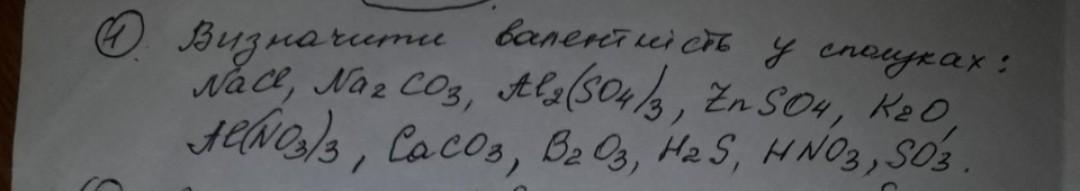 4. Визначити валентність у сполуках:
NaCl, Na2CO3, Al2(SO4)3, ZnSO4, K2O,
Al(NO3)3, CaCO3, B2O3, H2S, HNO3, SO3.